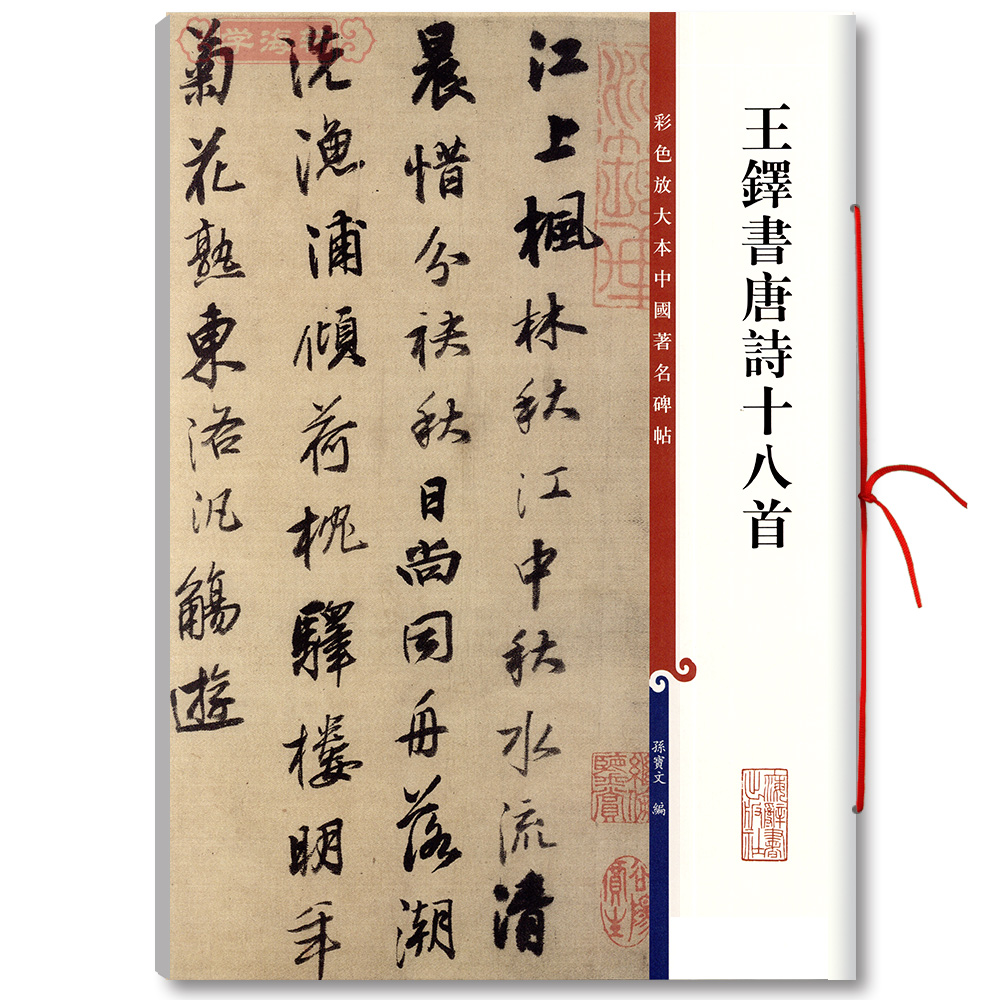 王鐸書唐詩十八首
彩色放大本中國著名碑帖
孫寳文 編
上海辭書出版社
江上楓林秋江中秋水流清
晨惜分袂秋日尚同舟落潮
洗漁浦傾荷枕驛樓明年
菊花熟東洛汎觴遊